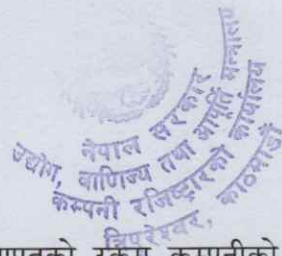 नेपाल सरकार
उद्योग, वाणिज्य तथा आपूर्ति मन्त्रालय
कम्पनी रजिष्ट्रारको कार्यालय
त्रिपुरेश्वर, काठमाडौं
कम्पनीको